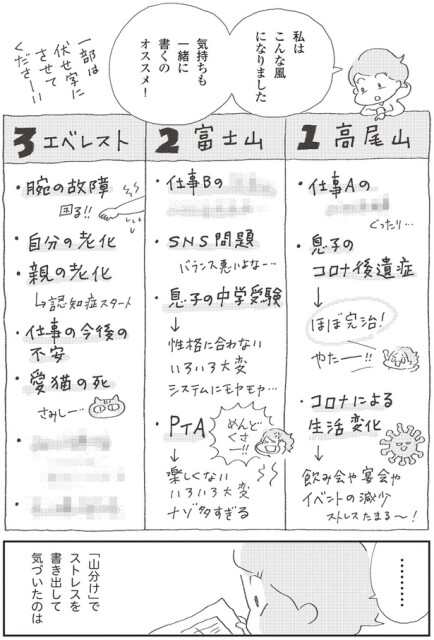 私は
こんな風
になりました
気持ちも
一緒に
書くの
オススメ!
一部は
伏せ字に
させて
くださーい
1 高尾山
・仕事Aの
ぐったり…
・息子の
コロナ後遺症
↓
ほぼ完治!
やたーー!!
・コロナによる
生活変化
↓
飲み会や宴会や
イベントの減少
ストレスたまる〜!
2 富士山
・仕事Bの
・SNS問題
バランス悪いよなー…
・息子の中学受験
↓
性格に合わない
いろいろ大変
システムにモヤモヤ…
・PTA
めんど
くさ
ー!!
↓
楽しくない
いろいろ大変
ナゾ多すぎる
3 エベレスト
・腕の故障
困る!!
・自分の老化
・親の老化
↳認知症スタート
・仕事の今後の
不安
・愛猫の死
さみしー…
………
「山分け」で
ストレスを
書き出して
気づいたのは